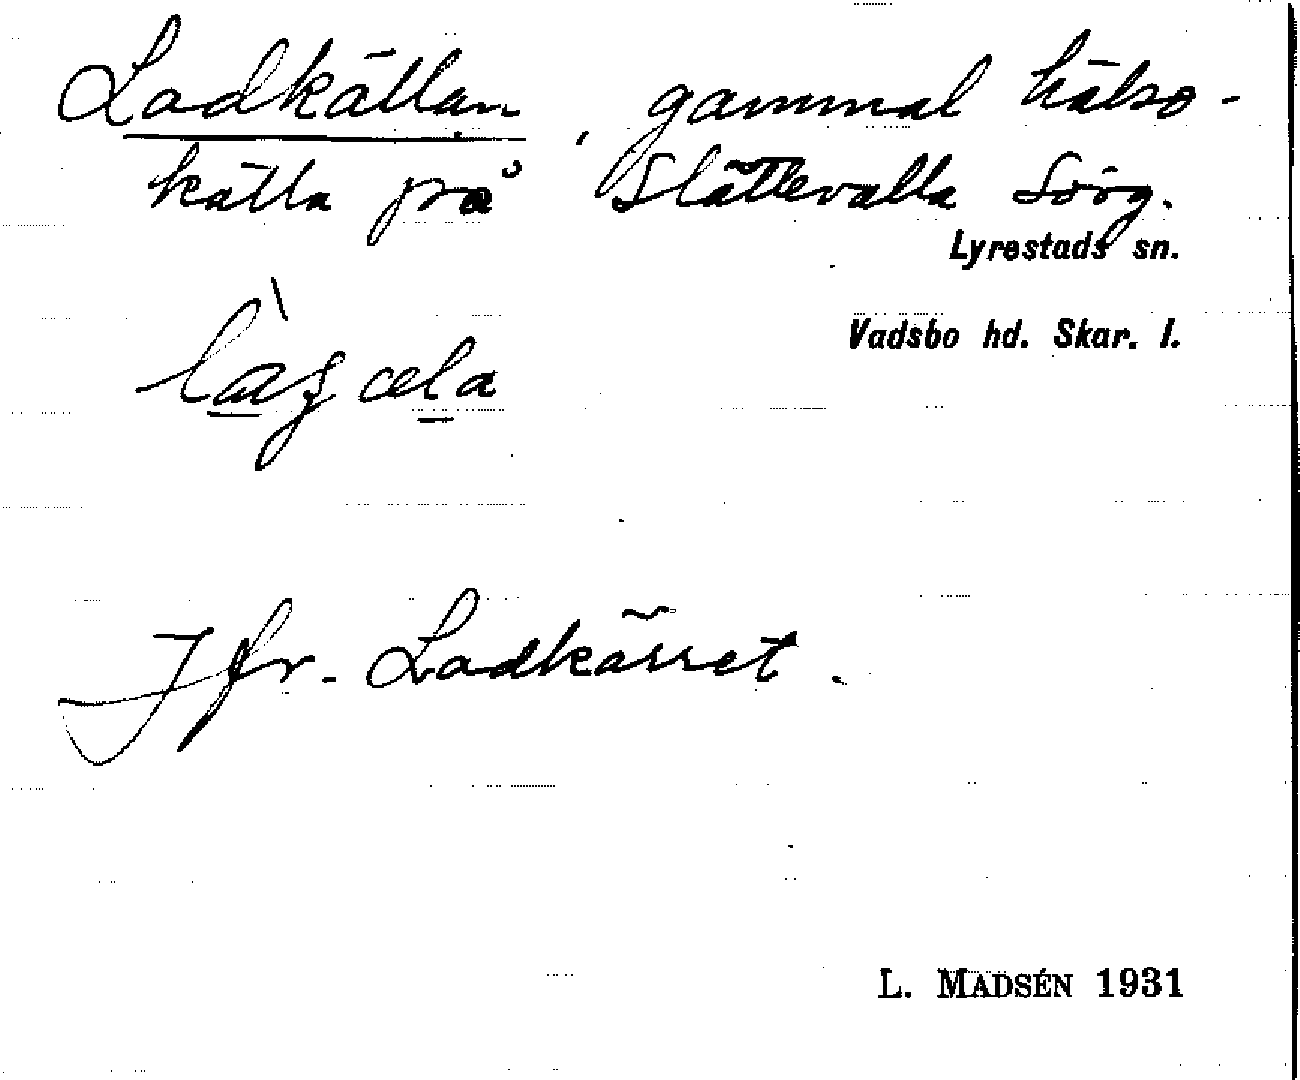 Ladkällan, gammal hälso-
källa på Slättevalla Sörg.
Lyrestads sn.
Vadsbo hd. Skar. l.
Jfr. Ladkärret.
L. MADSÉN 1931